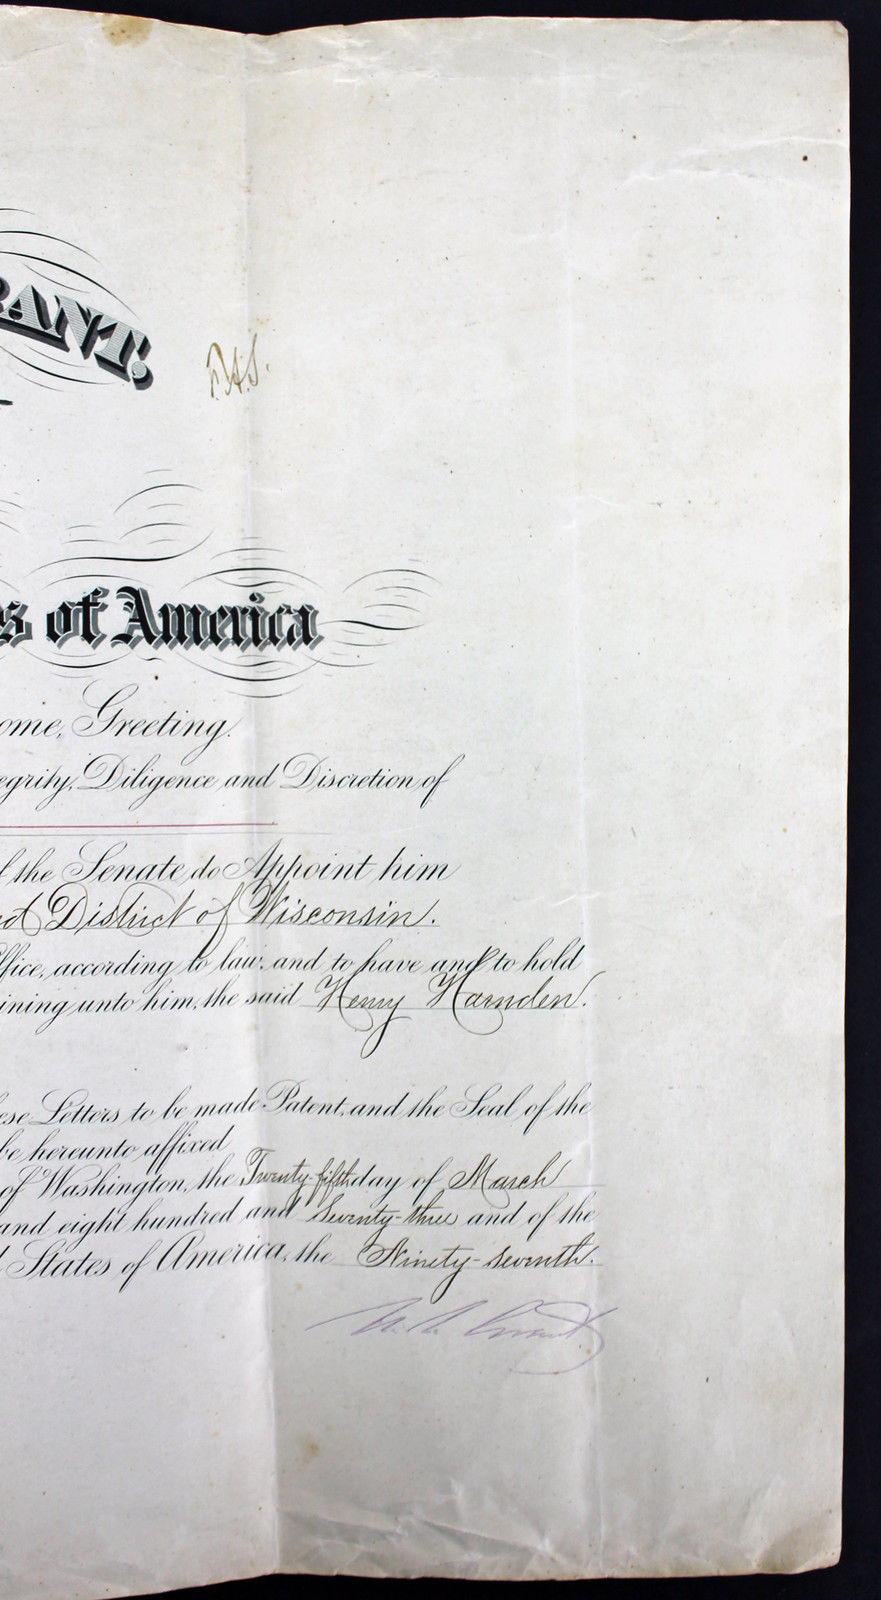 RANT.
F.A.S.
s of America
ome, Greeting.
egrity, Diligence and Discretion of
f the Senate do Appoint him
nd District of Wisconsin.
ffice, according to law; and to have and to hold
ining unto him, the said Henry Harnden.
ese Letters to be made Patent, and the Seal of the
be hereunto affixed
of Washington, the Twenty-fifth day of March
and eight hundred and Seventy-three and of the
d States of America, the Ninety-seventh.
U.S. Grant